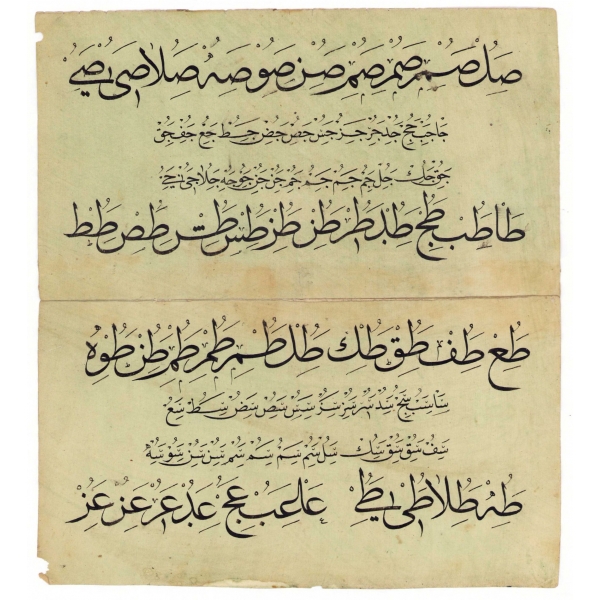 صل صم صم صم صن صو صه صلا صى صے
جا جب جج جد جر جز جس جص جض جط جع جف جق
جق جك جل جم جم جم جم جن جن جو جه جلا جى جے
طا طب طج طد طر طز طز طس طس طص طط
طع طف طق طك طل طم طم طم طن طو طه
سا سب سج سد سر سز سز سس سص سض سط سع
سف سق سق سك سل سم سم سم سم سن سن سو سه
طه طلا طى طے عا عب عج عد عر عز عز